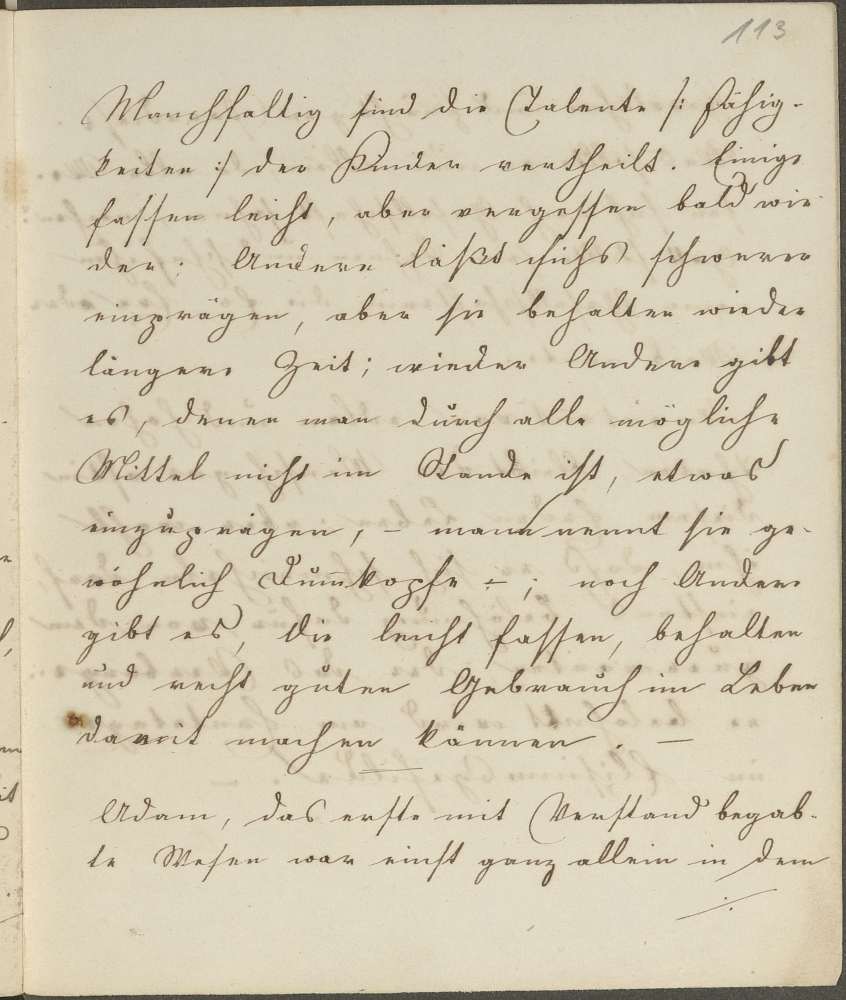 113
Manchfaltig sind die Talente /: Fähig-
keiten :/ der Kinder vertheilt. Einige
fassen leicht, aber vergessen bald wie
der; Andern läßt sichs schwerer
einprägen, aber sie behalten wieder
längere Zeit; wieder Andere gibt
es, denen man durch alle mögliche
Mittel nicht im Stande ist, etwas
einzuprägen, – mann nennt sie ge-
wöhnlich Dum̅kopfe –; noch Andere
gibt es, die leicht fassen, behalten
und recht guten Gebrauch im Leben
damit machen können. —
Adam, das erste mit Verstand begab-
te Wesen war einst ganz allein in dem
./.